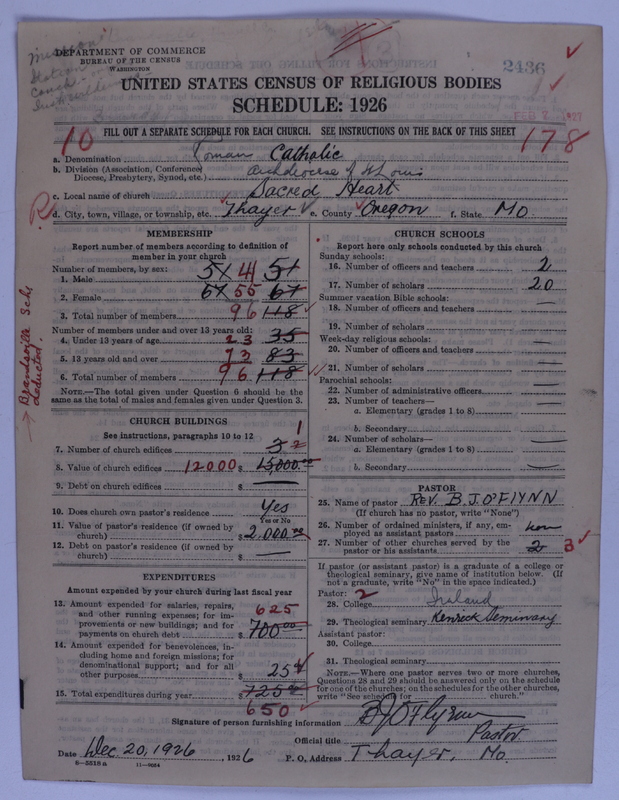 DEPARTMENT OF COMMERCE
BUREAU OF THE CENSUS
WASHINGTON
2436
UNITED STATES CENSUS OF RELIGIOUS BODIES
SCHEDULE: 1926
FEB 2 1927
10 FILL OUT A SEPARATE SCHEDULE FOR EACH CHURCH. SEE INSTRUCTIONS ON THE BACK OF THIS SHEET 178
a. Denomination Roman Catholic
b. Division (Association, Conference, Diocese, Presbytery, Synod, etc.) Archdiocese of St Louis
c. Local name of church Sacred Heart
d. City, town, village, or township, etc. Thayer e. County Oregon f. State Mo
MEMBERSHIP
Report number of members according to definition of
member in your church
Number of members, by sex:
1. Male 51 41 51
2. Female 67 55 67
3. Total number of members 96 118
Number of members under and over 13 years old:
4. Under 13 years of age 23 35
5. 13 years old and over 73 83
6. Total number of members 96 118
NOTE.—The total given under Question 6 should be the
same as the total of males and females given under Question 3.
Brandsville Sch. deducted.
CHURCH BUILDINGS
See instructions, paragraphs 10 to 12
7. Number of church edifices 3 2 1
8. Value of church edifices 12000 $ 15,000.00
9. Debt on church edifices $ —
10. Does church own pastor's residence Yes
Yes or No
11. Value of pastor's residence (if owned by
church) $ 2,000.00
12. Debt on pastor's residence (if owned by
church) $ —
EXPENDITURES
Amount expended by your church during last fiscal year
13. Amount expended for salaries, repairs,
and other running expenses; for im-
provements or new buildings; and for
payments on church debt $ 700.00 625
14. Amount expended for benevolences, in-
cluding home and foreign missions; for
denominational support; and for all
other purposes $ 25
15. Total expenditures during year $ 725 650
CHURCH SCHOOLS
Report here only schools conducted by this church
Sunday schools:
16. Number of officers and teachers 2
17. Number of scholars 20
Summer vacation Bible schools:
18. Number of officers and teachers —
19. Number of scholars
Week-day religious schools:
20. Number of officers and teachers —
21. Number of scholars
Parochial schools:
22. Number of administrative officers —
23. Number of teachers—
a. Elementary (grades 1 to 8)
b. Secondary
24. Number of scholars—
a. Elementary (grades 1 to 8)
b. Secondary
PASTOR
25. Name of pastor REV. B. J. O'FLYNN
(If church has no pastor, write "None")
26. Number of ordained ministers, if any, em-
ployed as assistant pastors none
27. Number of other churches served by the
pastor or his assistants 2 3
If pastor (or assistant pastor) is a graduate of a college or
theological seminary, give name of institution below. (If
not a graduate, write "No" in the space indicated.)
Pastor: 2
28. College Ireland
29. Theological seminary Kenrick Seminary
Assistant pastor:
30. College
31. Theological seminary
NOTE.—Where one pastor serves two or more churches,
Questions 28 and 29 should be answered only on the schedule
for one of the churches; on the schedules for the other churches,
write "See schedule for church."
Signature of person furnishing information B J O'Flynn
Official title Pastor
Date Dec. 20, 1926, 1926 P. O. Address Thayer, Mo.
6—5518a 11—9034